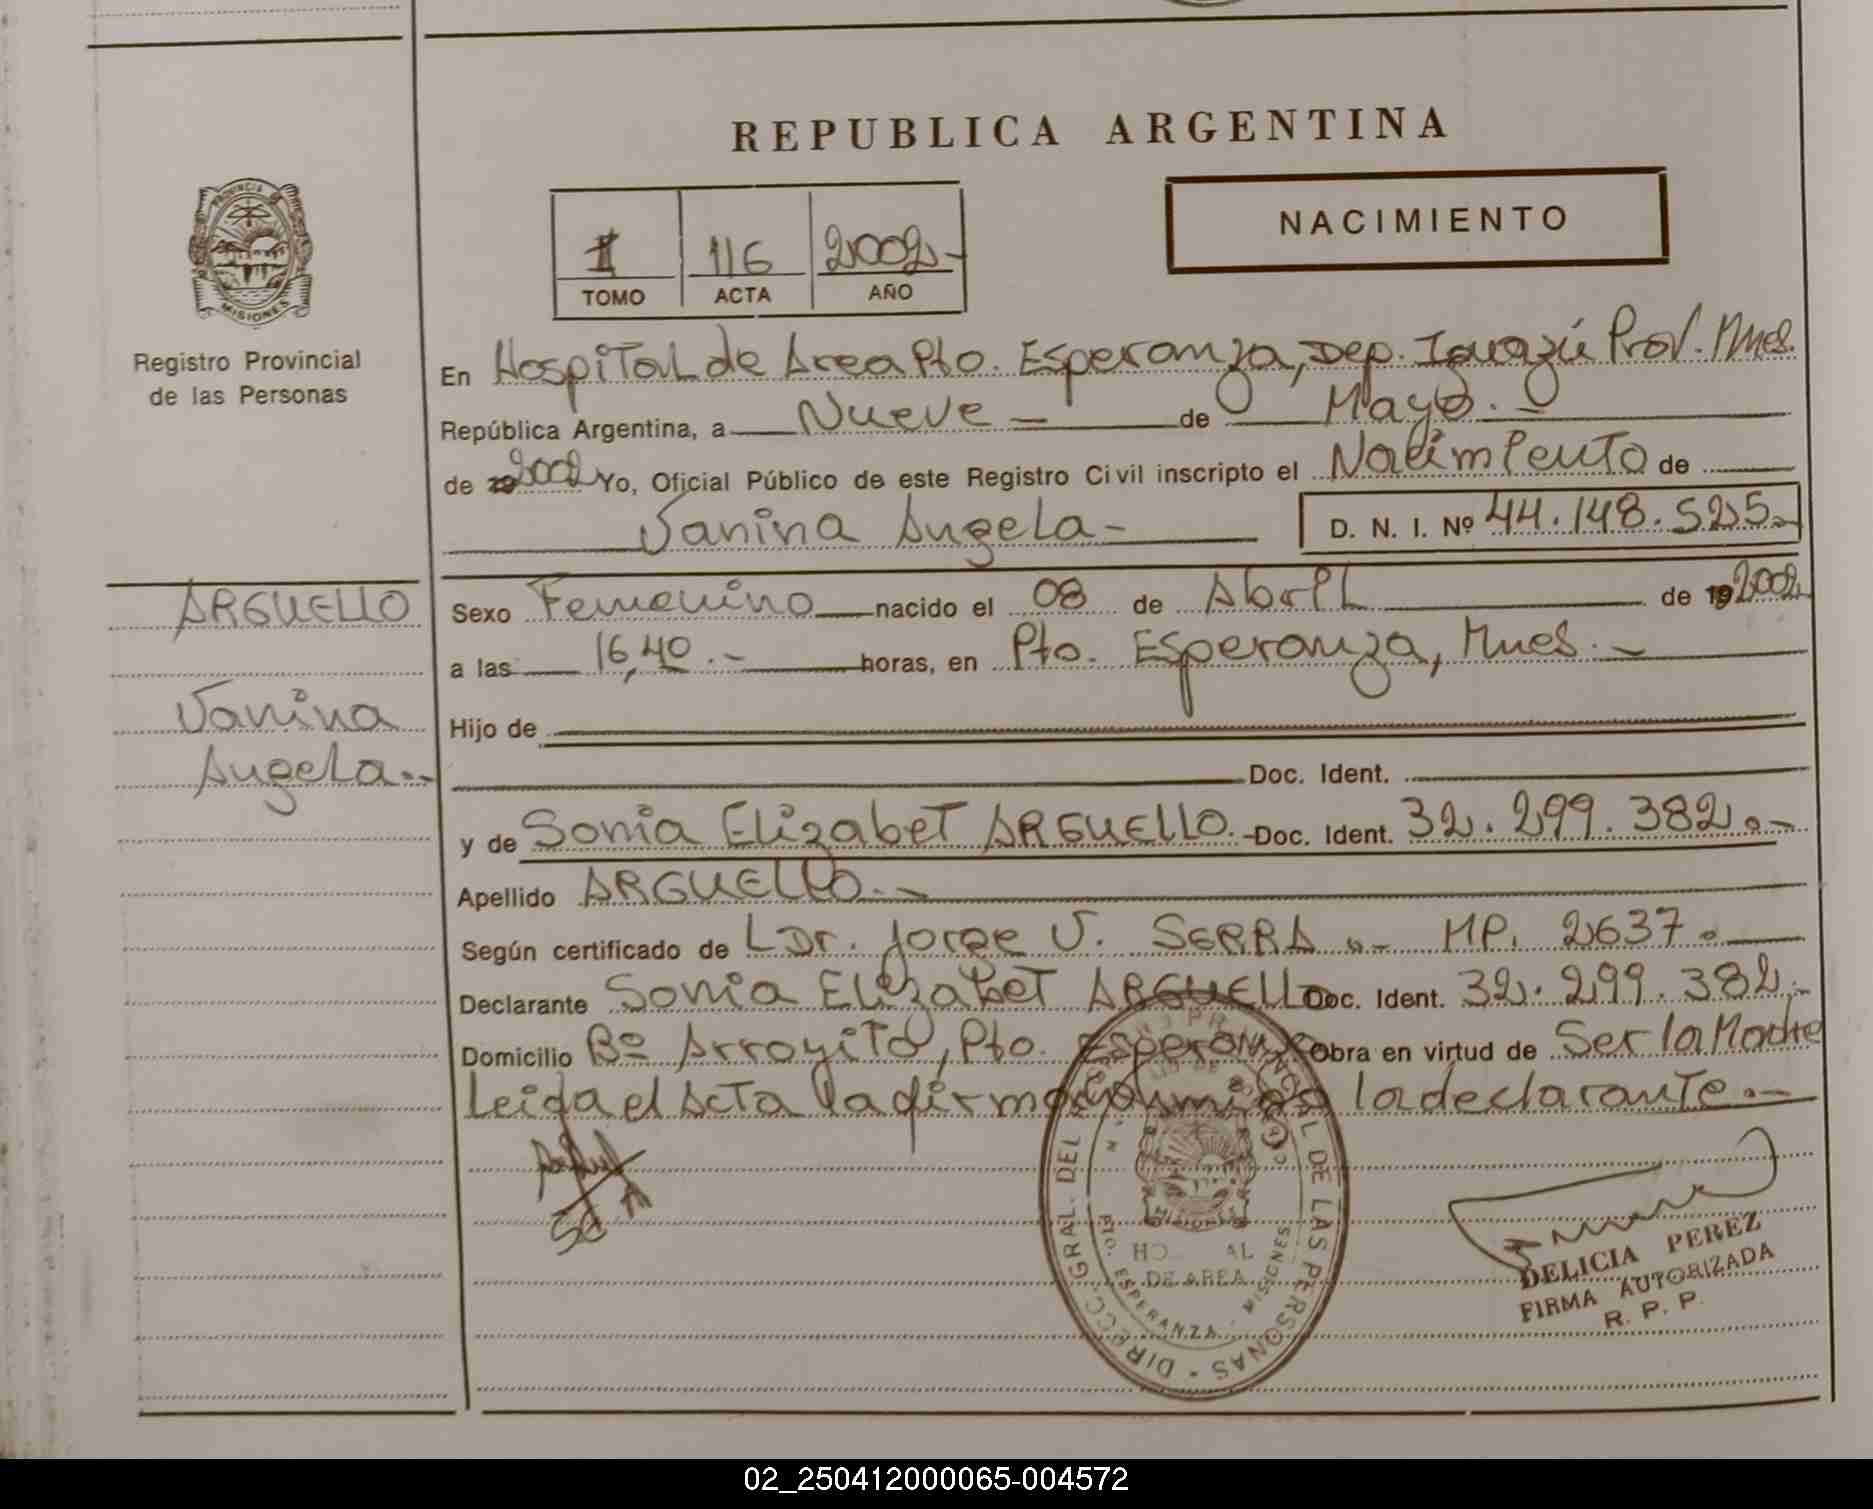 REPUBLICA ARGENTINA
NACIMIENTO
1 116 2002-
TOMO ACTA AÑO
PROVINCIA
MISIONES
Registro Provincial
de las Personas
En Hospital de Area Pto. Esperanza, Dep. Iguazú Prov. Mnes.
República Argentina, a Nueve - de Mayo. -
de 2002 Yo, Oficial Público de este Registro Civil inscripto el Nacimiento de
Vanina Angela - D. N. I. Nº 44.148.525.-
ARGUELLO
Vanina
Angela.-
Sexo Femenino nacido el 08 de Abril de 19 2002
a las 16,40.- horas, en Pto. Esperanza, Mnes. -
Hijo de
Doc. Ident.
y de Sonia Elizabet ARGUELLO.- Doc. Ident. 32.299.382.-
Apellido ARGUELLO.-
Según certificado de Dr. Jorge V. SERRA.- MP. 2637.
Declarante Sonia Elizabet ARGUELLO Doc. Ident. 32.299.382.-
Domicilio Bº Arroyito, Pto. Esperanza Obra en virtud de Ser la Madre
Leida el Acta la firma conmigo la declarante.-
DIRECC. GRAL. DEL REG. PROVINCIAL DE LAS PERSONAS
MISIONES
DE AREA
PTO. ESPERANZA - MISIONES
DELICIA PEREZ
FIRMA AUTORIZADA
R. P. P.
02_250412000065-004572